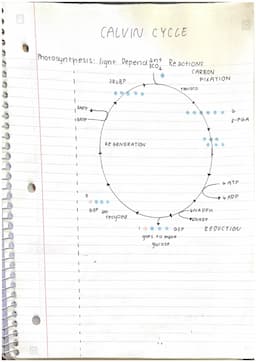 CALVIN CYCLE
Photosynthesis: light Dependent Reactions
3CO2
CARBON
FIXATION
3RUBP
rubisco
6
3-PGA
3ATP
3ADP
REGENERATION
6 ATP
6 ADP
6NADPH
G3P are
recycled
G3P
REDUCTION
goes to make
glucose